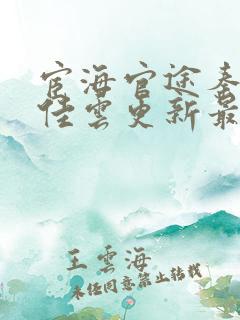 宦海官途秦
佳雲更新最
王雲海
未经同意禁止转载